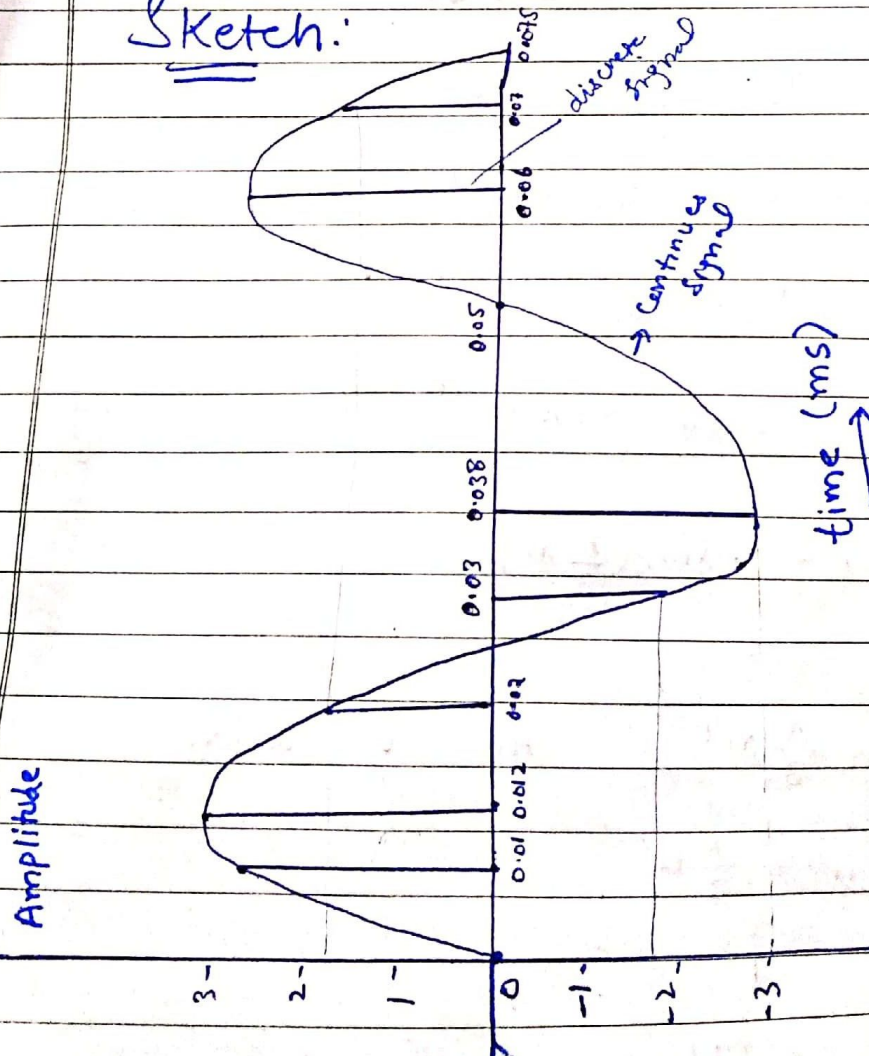 Sketch:
Amplitude
3-
2-
1-
0
-1-
-2-
-3-
0.01
0.012
0.02
0.03
0.038
0.05
0.06
0.07
0.075
discrete
signal
continues
signal
time (ms)